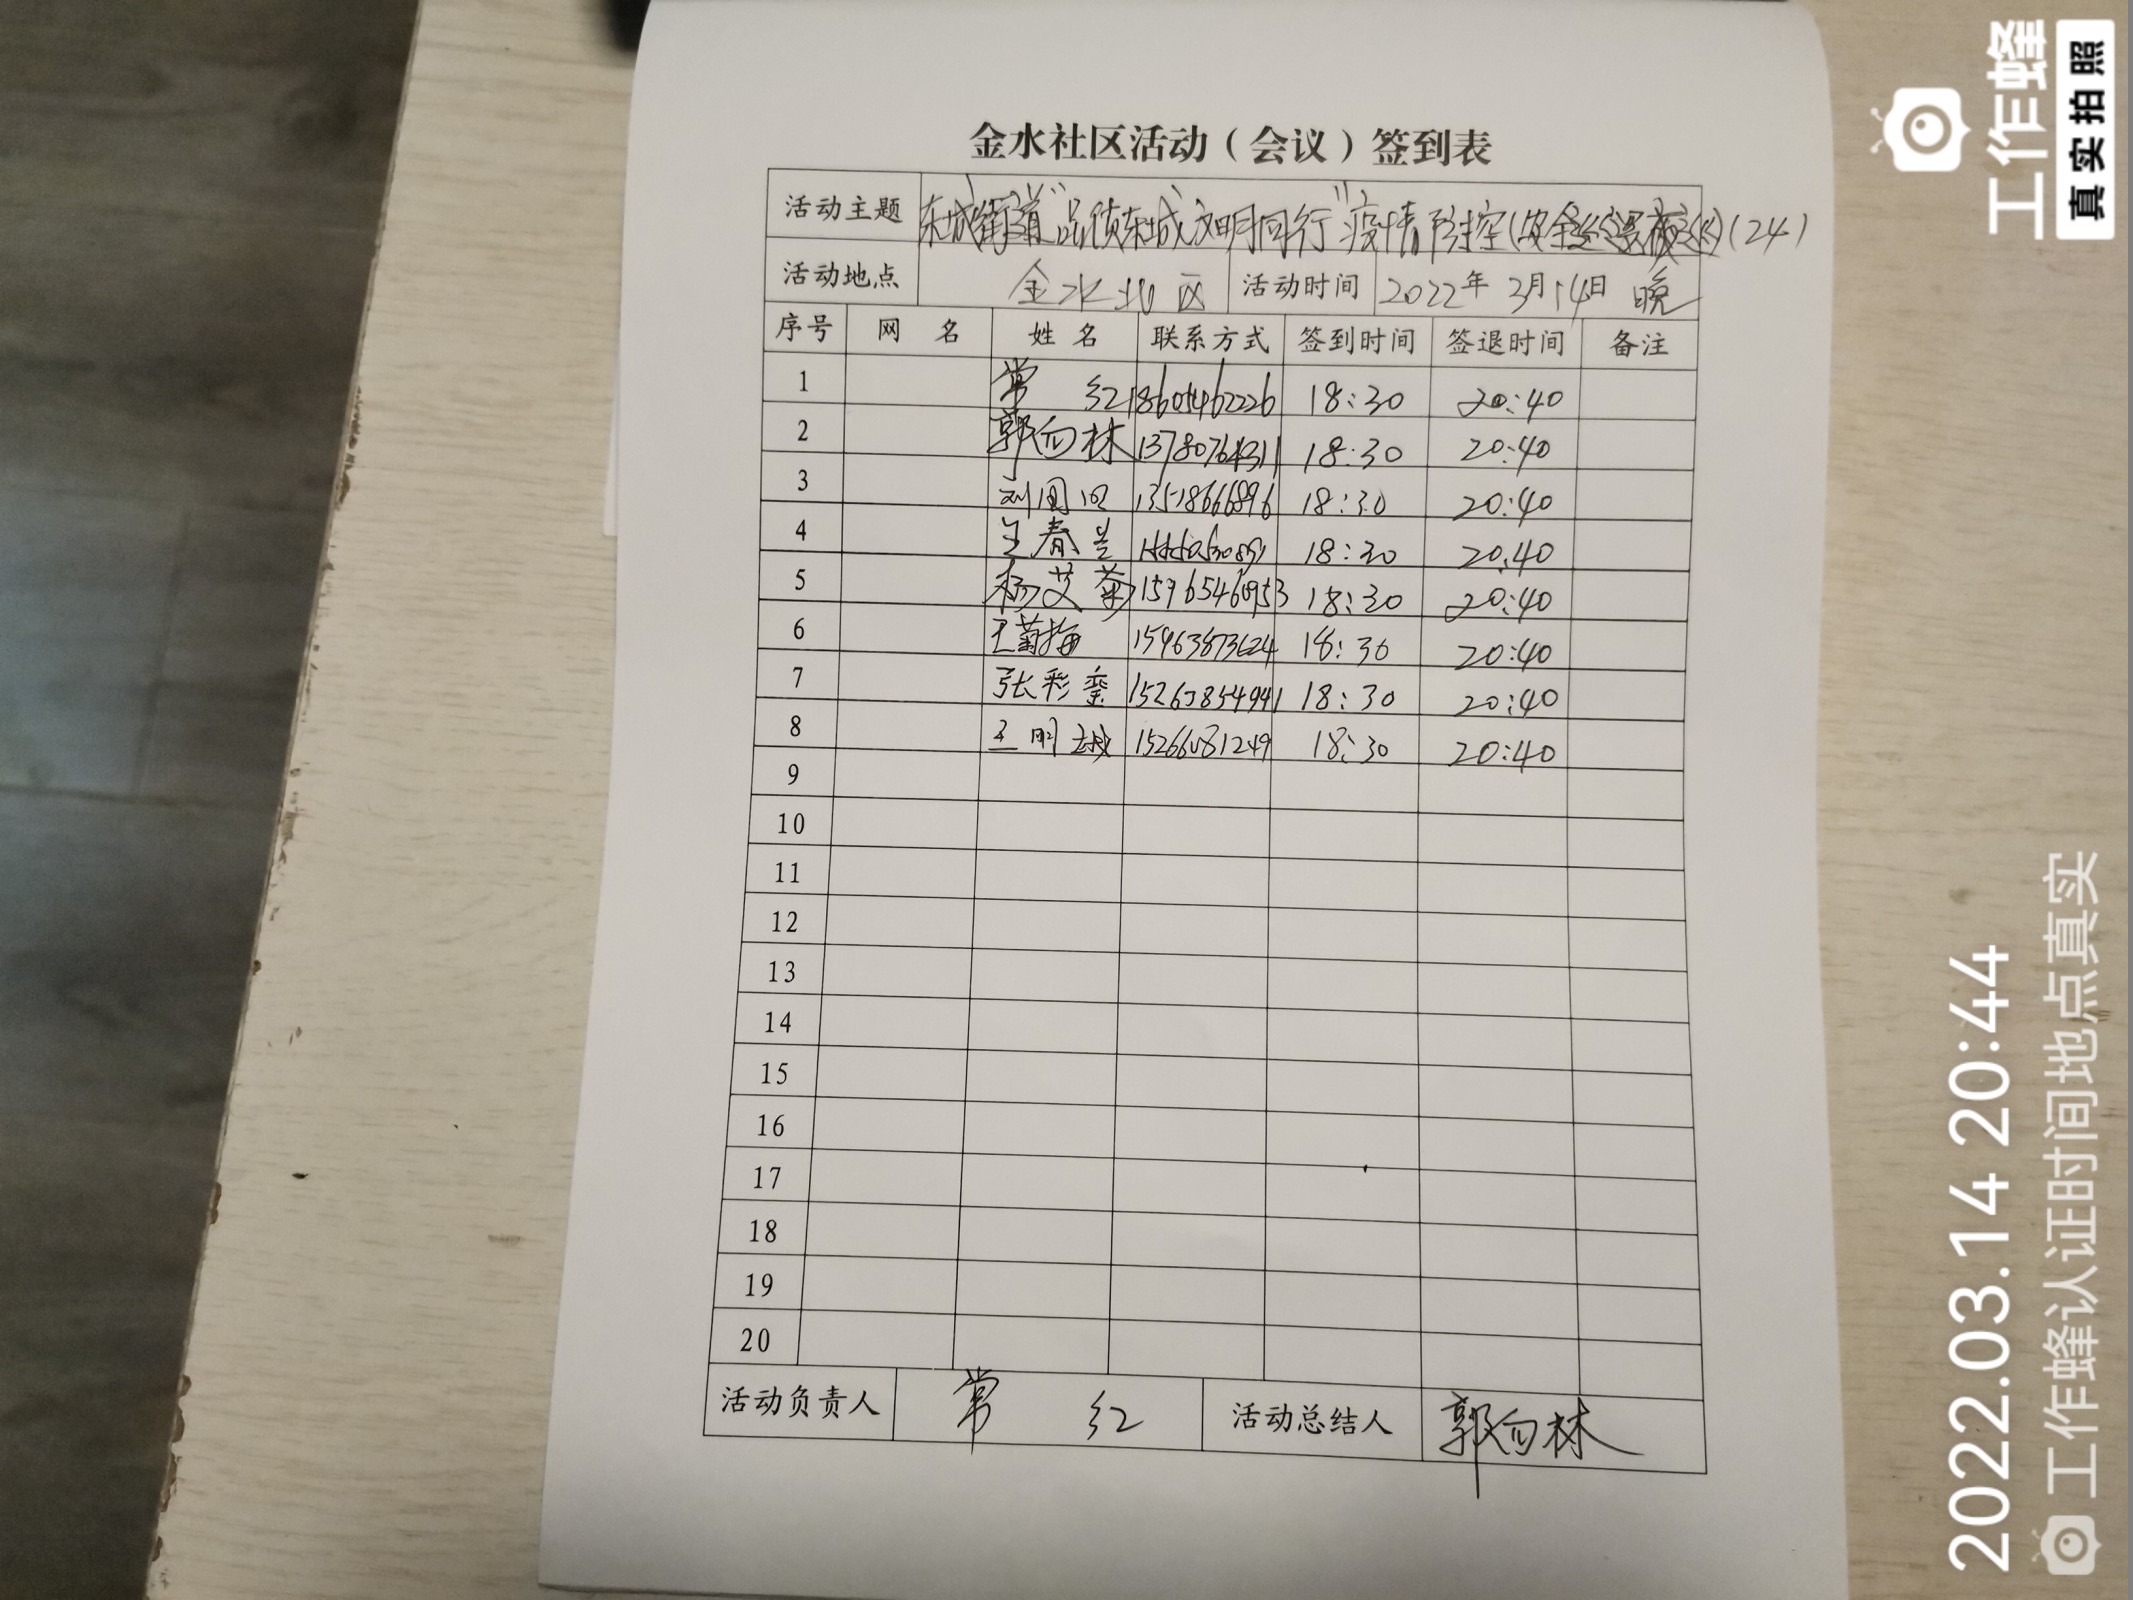 金水社区活动（会议）签到表
活动主题 东城街道"品质东城文明同行"疫情防控(安全夜巡)(24)
活动地点 金水北区 活动时间 2022年3月14日 晚
序号 网名 姓名 联系方式 签到时间 签退时间 备注
1 常红 18601462226 18:30 20:40
2 郭向林 13780764311 18:30 20:40
3 13518666896 18:30 20:40
4 王春兰 18:30 20:40
5 杨艾菊 15965460953 18:30 20:40
6 王菊梅 15963873624 18:30 20:40
7 张彩銮 15263854941 18:30 20:40
8 王明 15266081249 18:30 20:40
9
10
11
12
13
14
15
16
17
18
19
20
活动负责人 常红 活动总结人 郭向林
工作蜂
真实拍照
2022.03.14 20:44
工作蜂认证时间地点真实